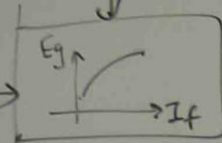 Eg
If